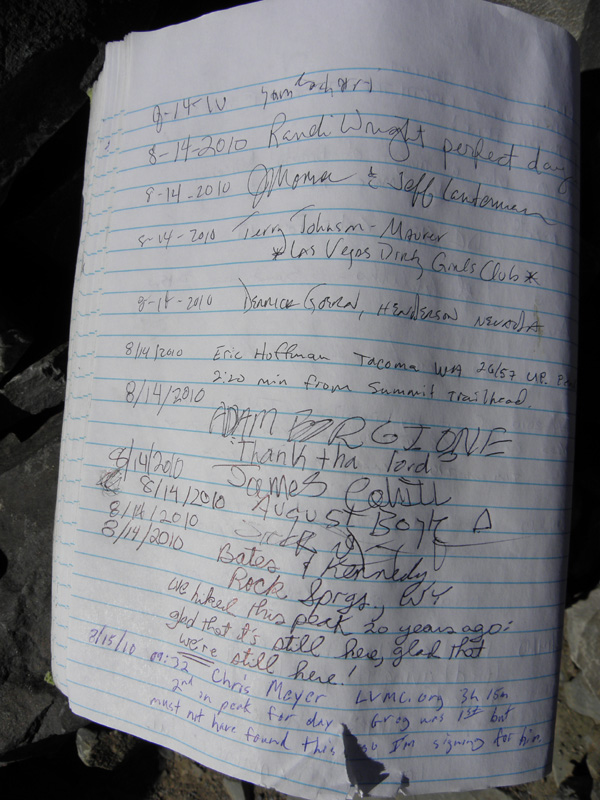 8-14-10 Sam
8-14-2010 Randi Wright perfect day
8-14-2010 JMoma & Jeff Lanterman
8-14-2010 Terry Johnson-Maurer
*Las Vegas Dirty Girls Club*
8-14-2010 Derrick HENDERSON NEVADA
8/14/2010 Eric Hoffman Tacoma WA 26/57 UP.
2:20 min from Summit Trailhead.
8/14/2010
ADAM BORGIONE
Thank tha lord
8/14/2010 James Cahill
8/14/2010 AUGUST
8/14/2010
8/14/2010 Bates & Kennedy
Rock Sprgs., WY
We hiked this peak 20 years ago:
glad that it's still here, glad that
we're still here!
8/15/10 09:32 Chris Meyer LVMC.org 3h 15m
2nd on peak for day. Greg was 1st but
must not have found this so I'm signing for him.